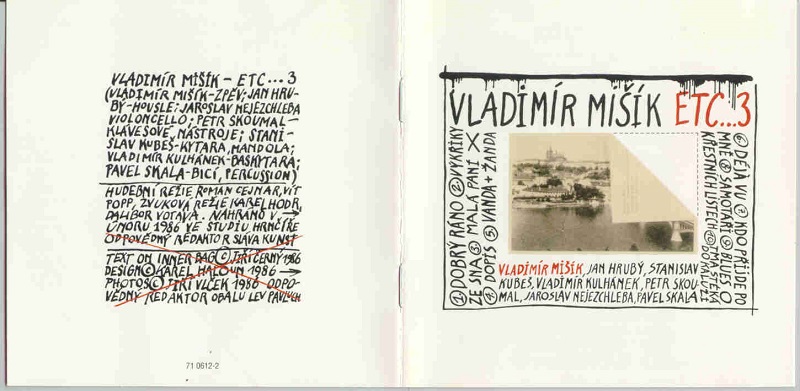 VLADIMÍR MIŠÍK – ETC... 3
(VLADIMÍR MIŠÍK-ZPĚV; JAN HRU-
BÝ-HOUSLE: JAROSLAV NEJEZCHLEBA
VIOLONCELLO; PETR SKOUMAL-
KLÁVESOVÉ NÁSTROJE; STANI-
SLAV KUBEŠ-KYTARA, MANDOLA;
VLADIMÍR KULHÁNEK-BASKYTARA;
PAVEL SKALA-BICÍ, PERCUSSION)
HUDEBNÍ REŽIE ROMAN CEJNAR, VÍT
POPP, ZVUKOVÁ REŽIE KAREL HODR,
DALIBOR VOTAVA. NAHRÁNO V →
ÚNORU 1986 VE STUDIU HRNČÍŘE
ODPOVĚDNÝ REDAKTOR SLÁVA KUNST
TEXT ON INNER BAG © JIŘÍ ČERNÝ 1986
DESIGN © KAREL HALOUN 1986 →
PHOTOS © JIŘÍ VLČEK 1986 ODPO-
VĚDNÝ REDAKTOR OBALU LEV PAVLUCH
71 0612-2
VLADIMÍR MIŠÍK ETC...3
① DOBRÝ RÁNO ② VÝKŘIKY
ZE SNA ③ MALÁ PANÍ X
④ DOPIS ⑤ VANDA + ŽANDA
⑥ DÉJÀ VU ⑦ KDO PŘIJDE PO
MNĚ ⑧ SAMOTÁŘI ⑨ BLUES O
KŘESTNÍCH LISTECH ⑩ MĚSTA
DO KALUŽÍ
VLADIMÍR MIŠÍK, JAN HRUBÝ, STANISLAV
KUBEŠ, VLADIMÍR KULHÁNEK, PETR SKOU-
MAL, JAROSLAV NEJEZCHLEBA, PAVEL SKALA